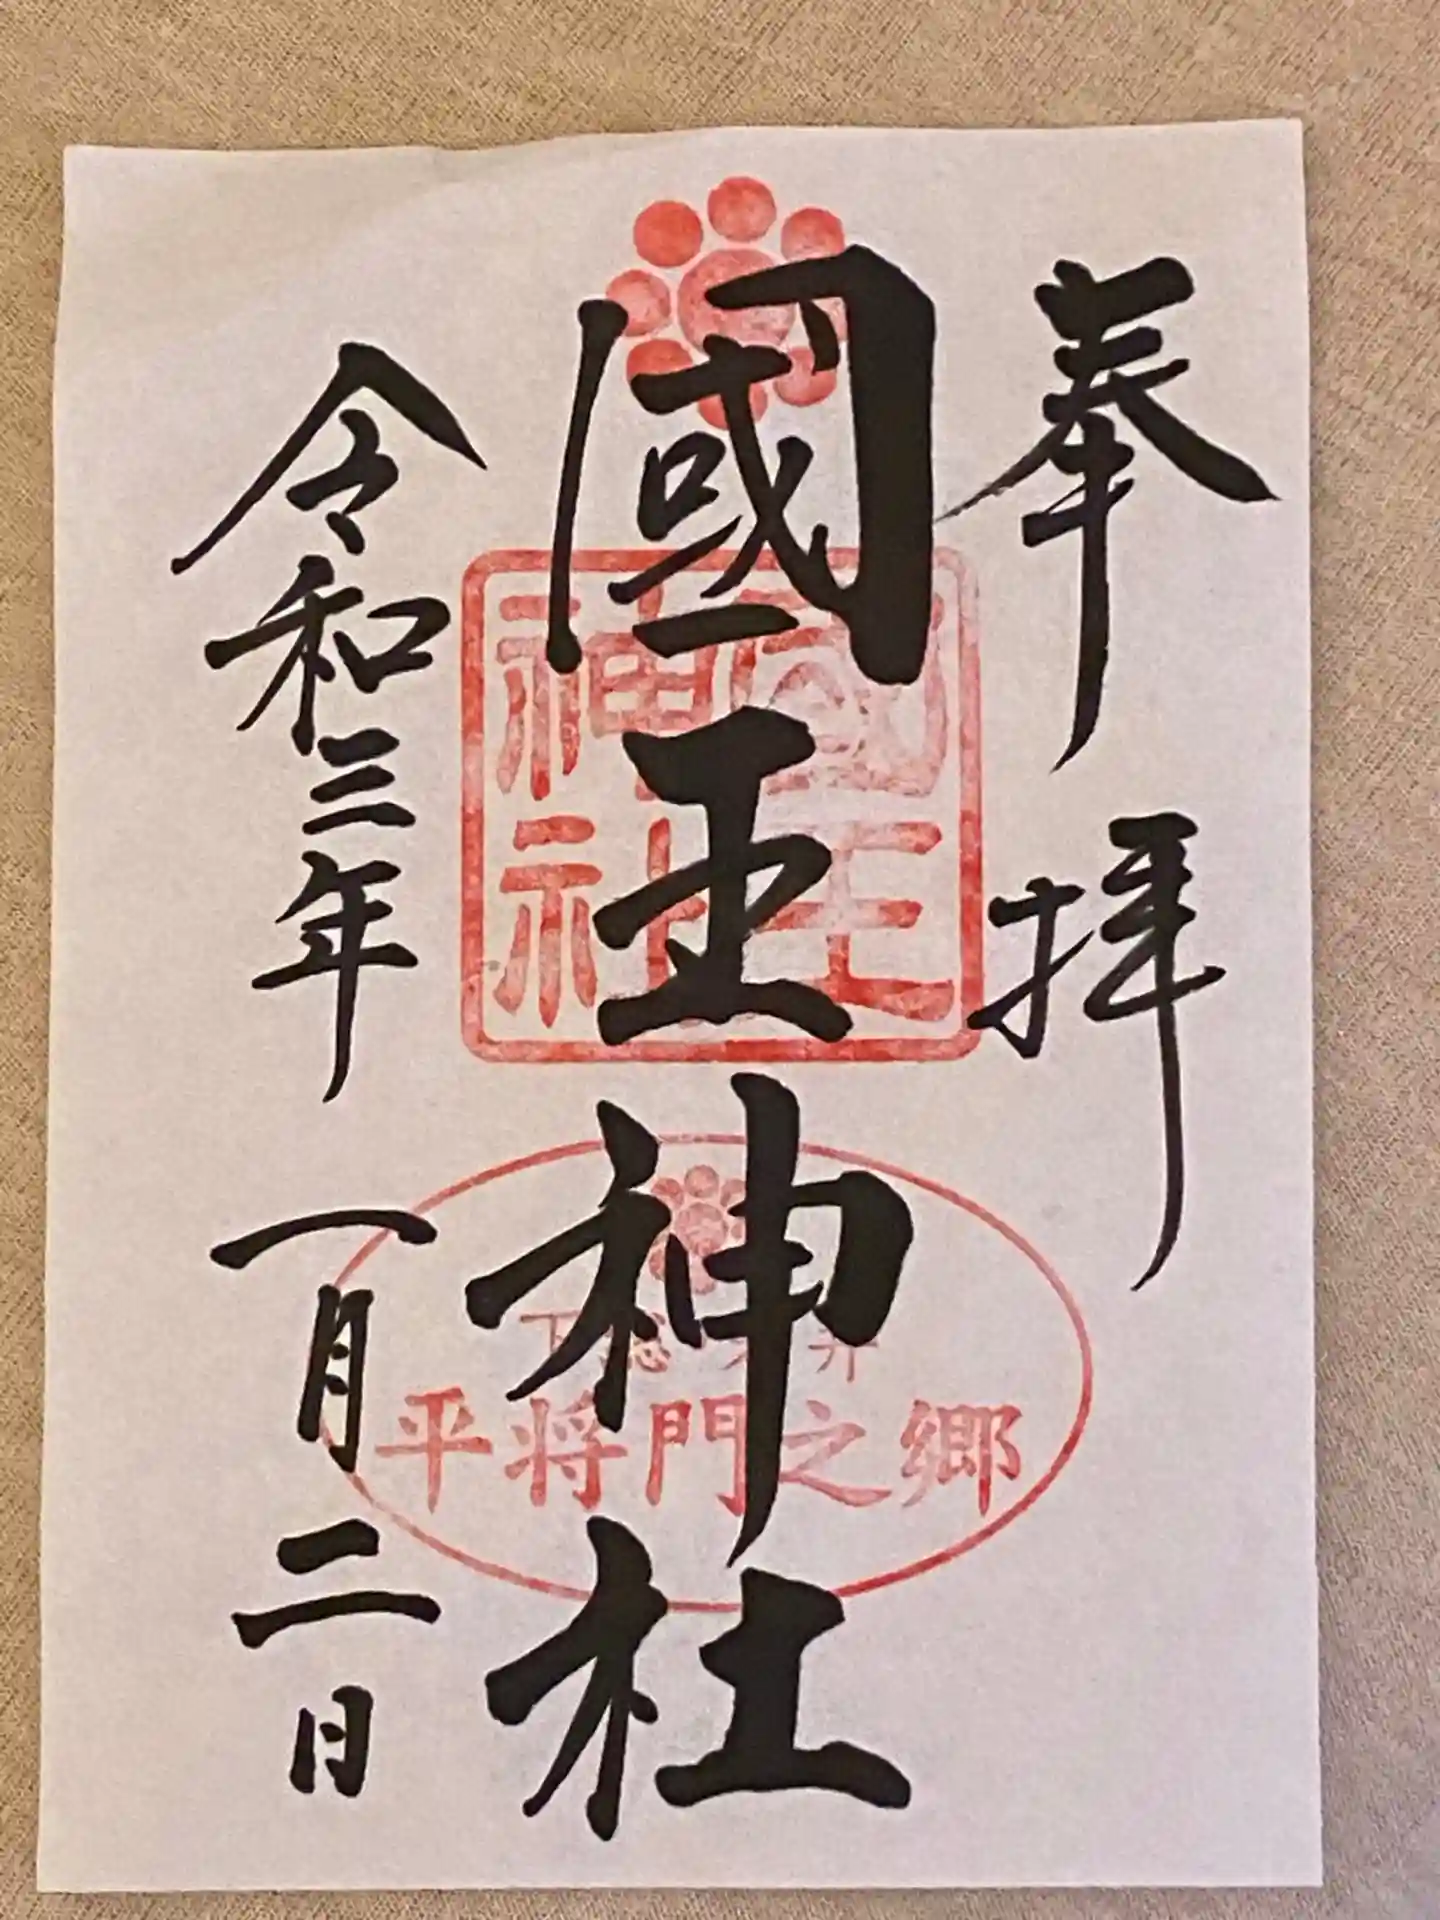 奉拝
國王神社
國王
神社
下総
平将門之郷
令和三年一月二日